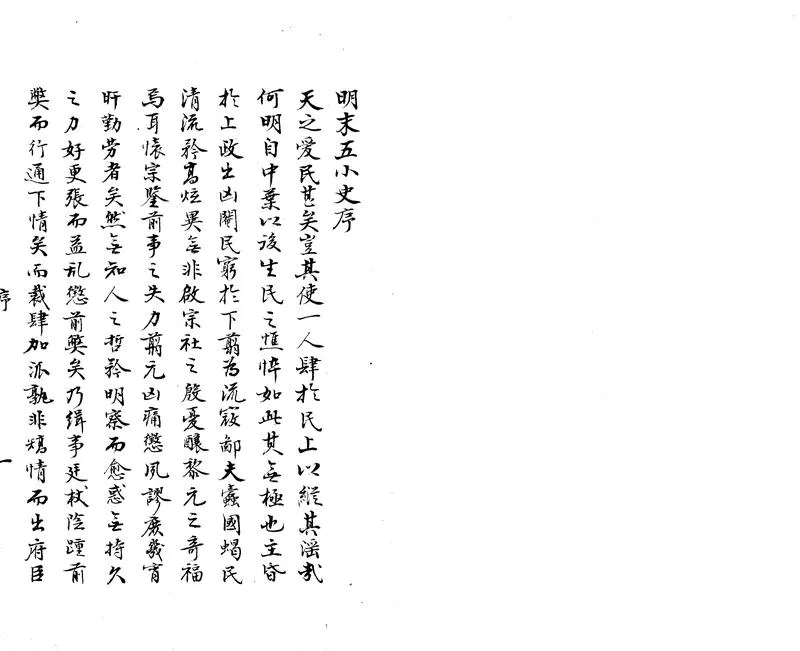 明末五小史序
天之愛民甚矣豈其使一人肆於民上以縱其淫哉
何明自中葉以後生民之憔悴如此其無極也主昏
於上政出凶閹民窮於下翦為流寇鄙夫蠹國蝎民
清流矜高炫異無非啟宗社之殷憂釀黎元之奇福
焉耳懷宗鑒前事之失力翦元凶痛懲夙謬庶幾宵
旰勤勞者矣然無知人之哲矜明察而愈惑無持久
之力好更張而益乱懲前弊矣乃緝事廷杖陰踵前
弊而行通下情矣而裁肆加派孰非矯情而出府臣
序
一